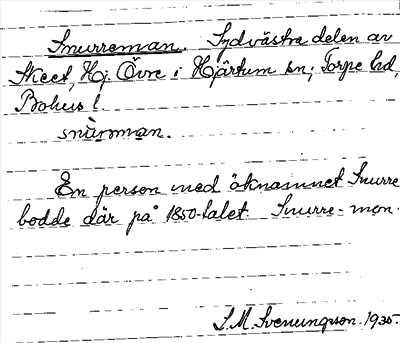 Snurreman. Sydvästra delen av
Skeet, Hj. Övre i Hjärtum sn; Torpe hd,
Bohus l.
snùrman.
En person med öknamnet Snurre
bodde där på 1850-talet. Snurre-mon.
S.M. Svenungson. 1935.